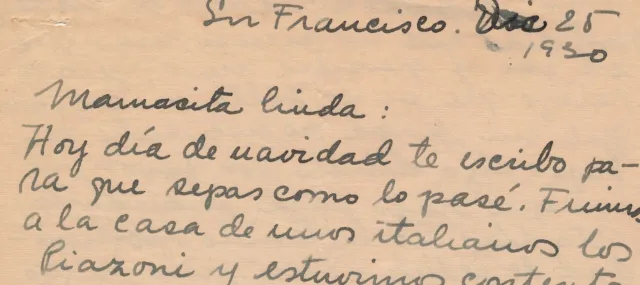 Sn Francisco. Dic 25
1930
Mamacita linda:
Hoy día de navidad te escribo pa-
ra que sepas como lo pasé. Fuimos
a la casa de unos italianos los
Piazoni y estuvimos